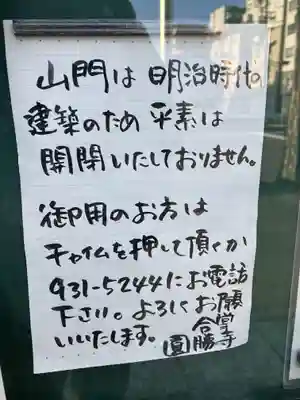 山門は明治時代の
建築のため平素は
開閉いたしておりません。
御用のお方は
チャイムを押して頂くか
931-5244にお電話
下さい。よろしくお願
いいたします。
合掌
圓勝寺